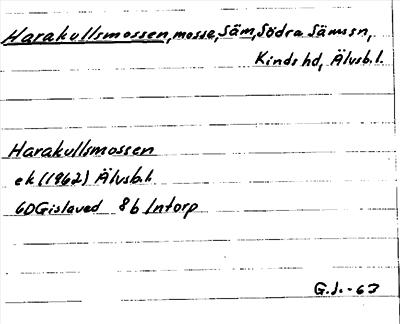 Harakullsmossen, mosse, Säm, Södra Säms sn,
Kinds hd, Älvsb. l.
Harakullsmossen
ek (1962) Älvsb. l.
6D Gislaved 8b Intorp
G. J. -63